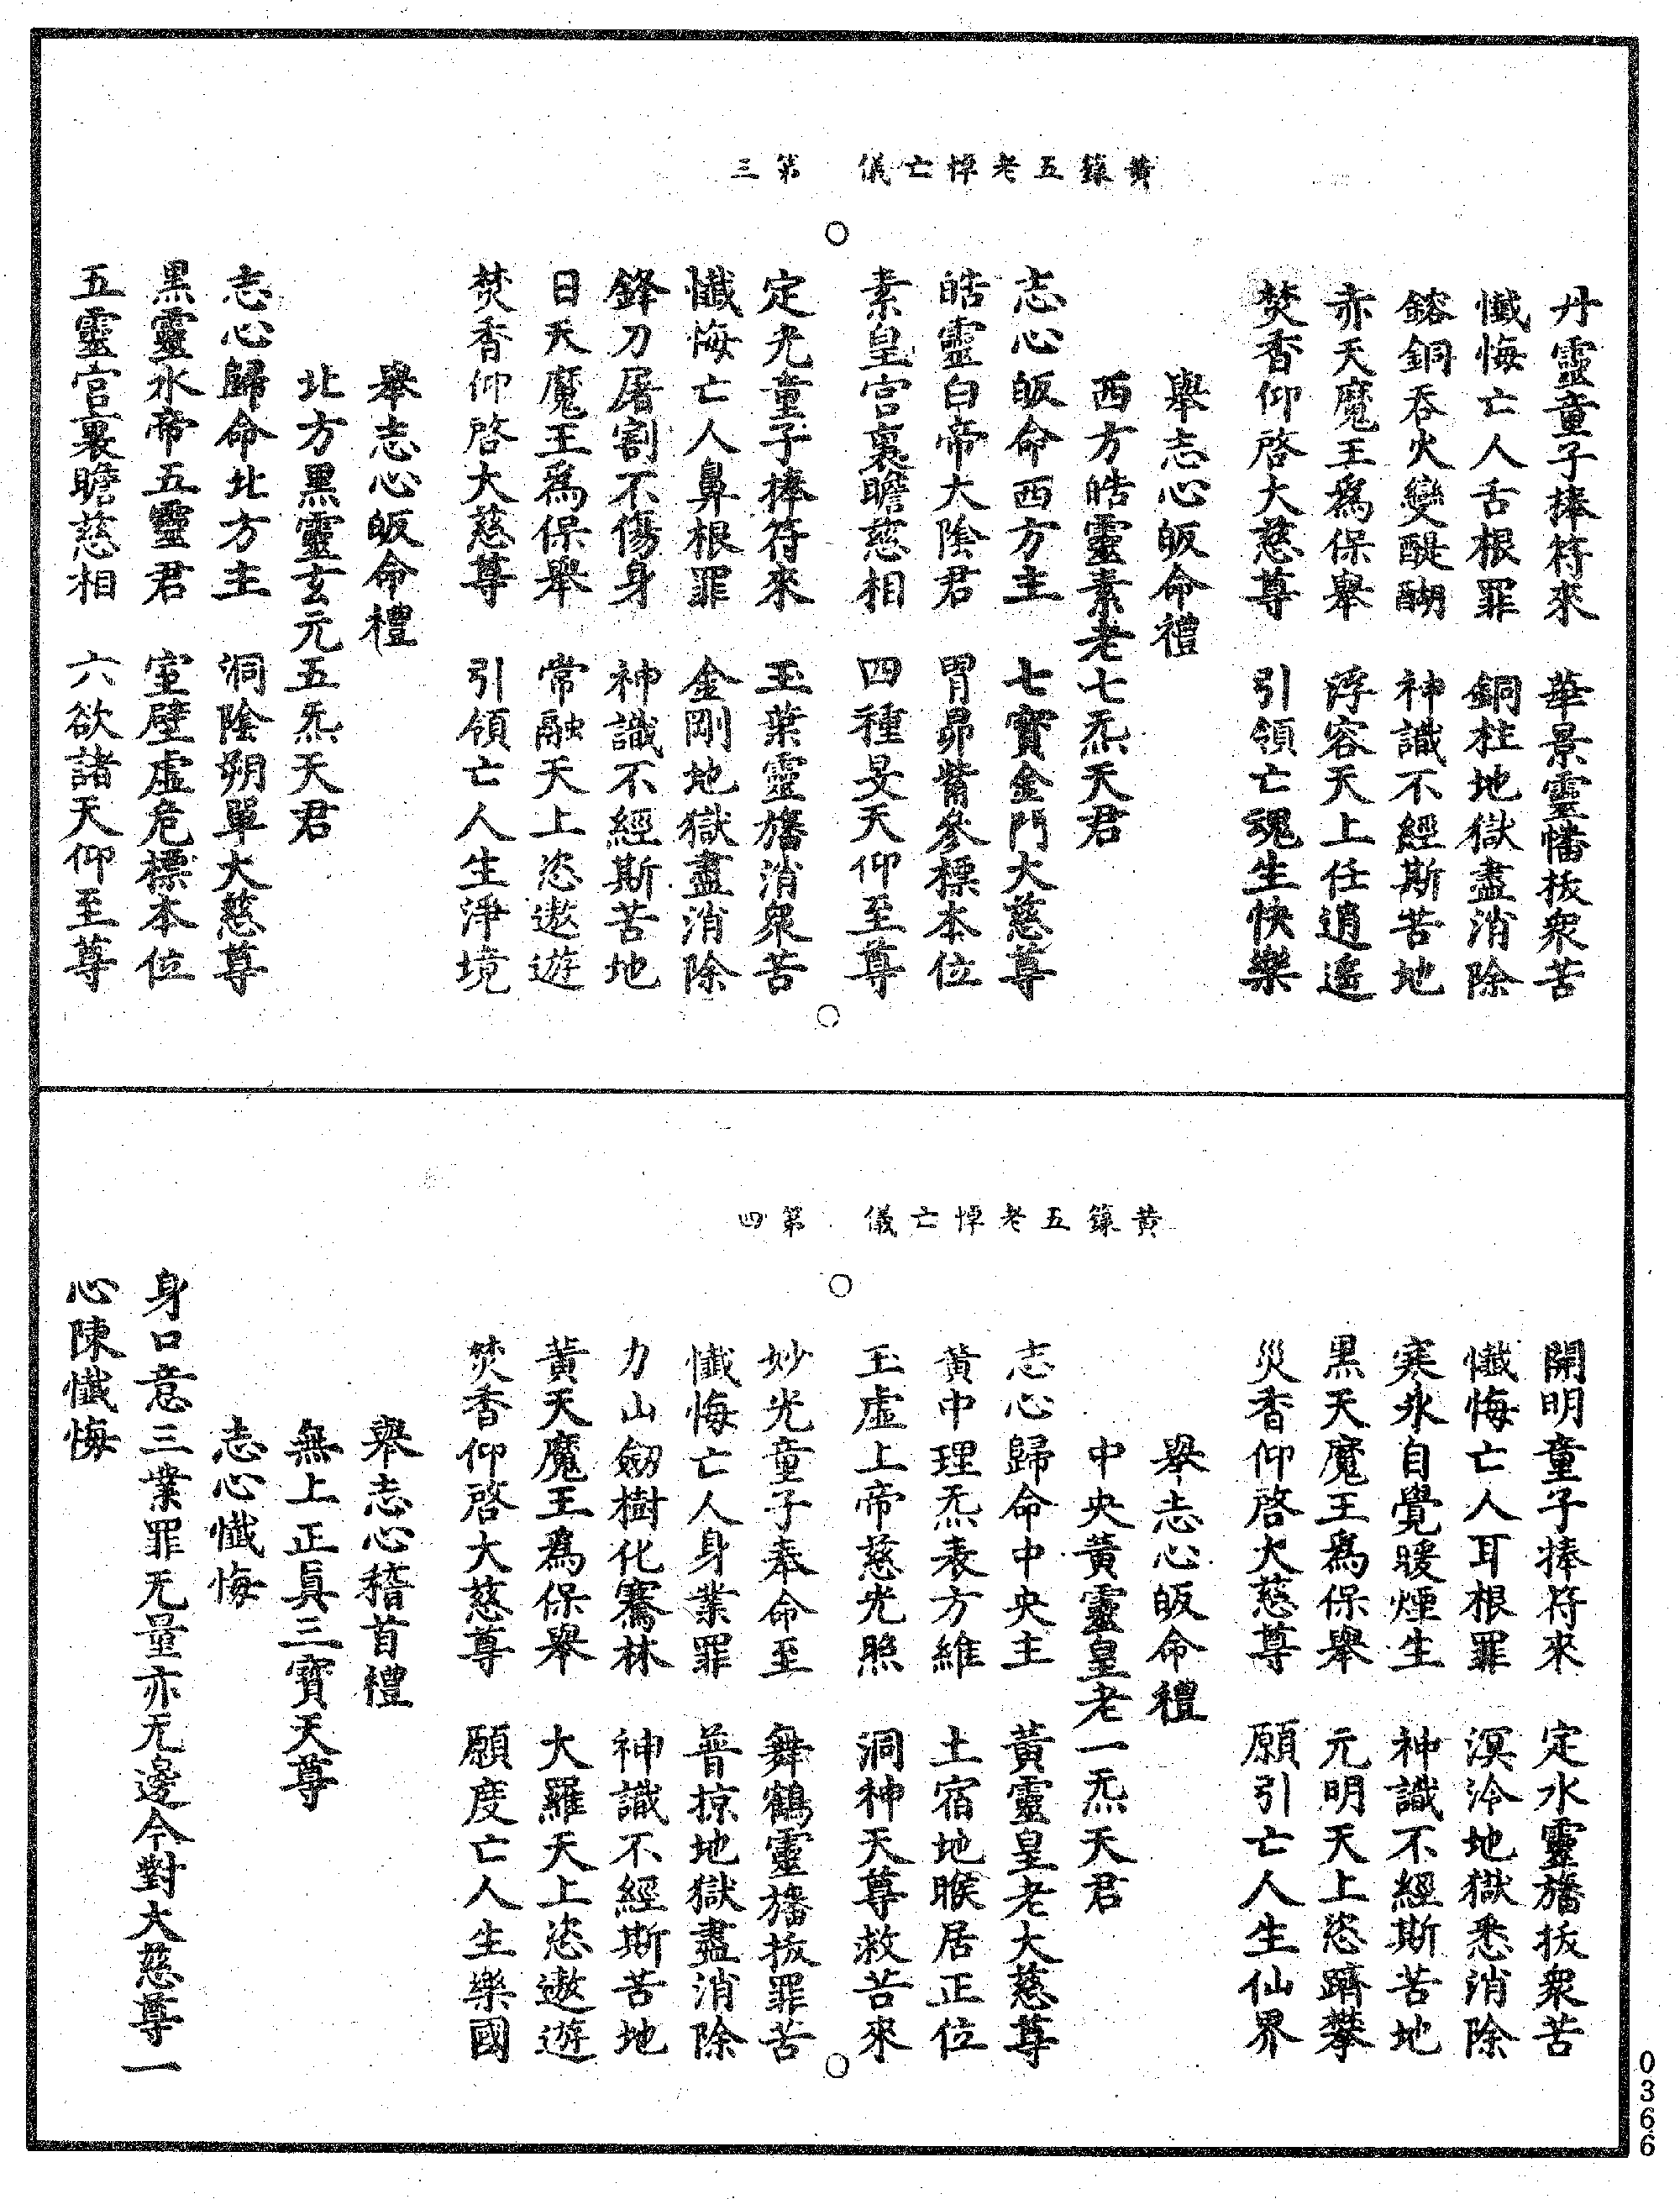 丹靈童子捧符來　華景靈幡拔衆苦
懺悔亡人舌根罪　銅柱地獄盡消除
鎔銅吞火變醍醐　神識不經斯苦地
赤天魔王爲保舉　浮容天上任逍遙
焚香仰啓大慈尊　引領亡魂生快樂
舉志心皈命禮
西方皓靈素老七炁天君
志心皈命西方主　七寶金門大慈尊
皓靈白帝大陰君　胃昴觜參標本位
素皇宮裏瞻慈相　四種旻天仰至尊
黃籙五老悼亡儀　第三
定光童子捧符來　玉葉靈旛消衆苦
懺悔亡人鼻根罪　金剛地獄盡消除
鋒刀屠割不傷身　神識不經斯苦地
日天魔王爲保舉　常融天上恣遨遊
焚香仰啓大慈尊　引領亡人生淨境
舉志心皈命禮
北方黑靈玄元五炁天君
志心歸命北方主　洞陰朔單大慈尊
黑靈水帝五靈君　室壁虛危標本位
五靈宮裏瞻慈相　六欲諸天仰至尊
開明童子捧符來　定水靈旛拔衆苦
懺悔亡人耳根罪　溟泠地獄悉消除
寒氷自覺暖煙生　神識不經斯苦地
黑天魔王爲保舉　元明天上恣躋攀
災香仰啓大慈尊　願引亡人生仙界
舉志心皈命禮
中央黃靈皇老一炁天君
志心歸命中央主　黃靈皇老大慈尊
黃中理炁表方維　土宿地睺居正位
玉虛上帝慈光照　洞神天尊救苦來
黃籙五老悼亡儀　第四
妙光童子奉命至　舞鶴靈旛拔罪苦
懺悔亡人身業罪　普掠地獄盡消除
力山劒樹化騫林　神識不經斯苦地
黃天魔王爲保舉　大羅天上恣遨遊
焚香仰啓大慈尊　願度亡人生樂國
舉志心稽首禮
無上正眞三寶天尊
志心懺悔
身口意三業罪无量亦无邊今對大慈尊一
心陳懺悔
0366